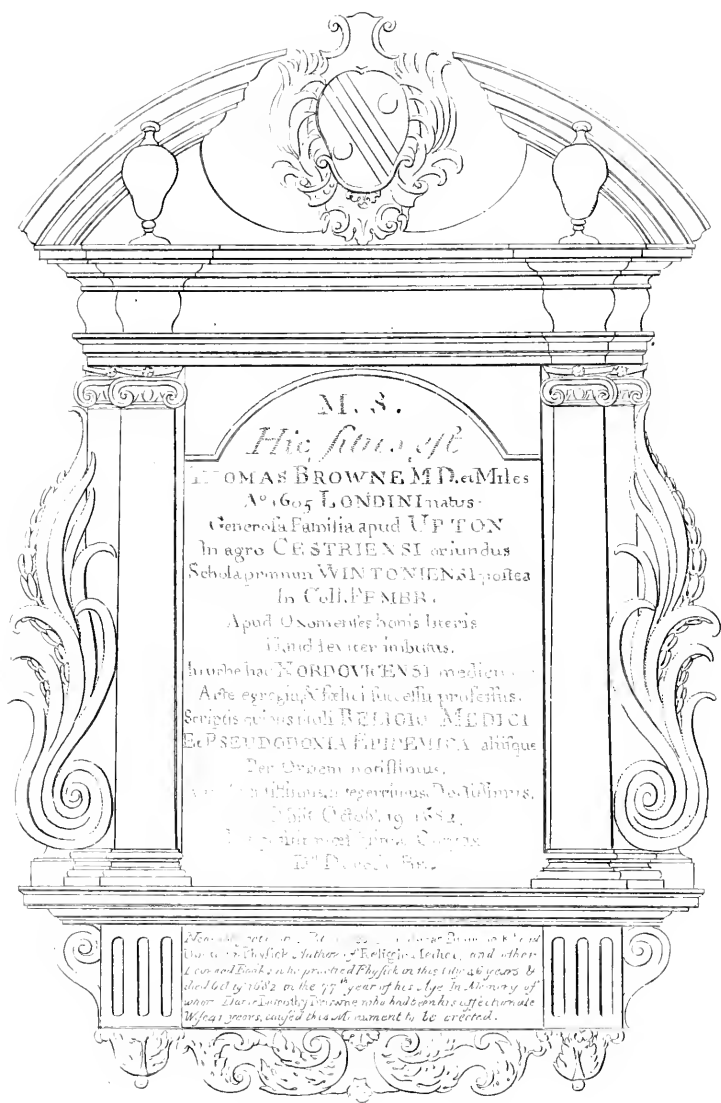 M. S.
Hic situs est
THOMAS BROWNE M D. et Miles
Aº 1605 LONDINI natus
Generosa Familia apud UPTON
In agro CESTRIENSI oriundus
Schola primum WINTONIENSI postea
In Coll. PEMBR.
Apud Oxonienses bonis literis
Haud leviter imbutus.
In urbe hac NORDOVICENSI medicinam
Arte egregia, & fœlici successu professus.
Scriptis quibus tituli RELIGIO MEDICI
Et PSEUDODOXIA EPIDEMICA aliisque
Per Orbem notissimus.
integerrimus, Doctissimus.
Obijt Octobr. 19 1682.
Dª Doroth. Br.
Physick Author of Religio Medici, and other
Learned Books who practised Physick in this City 46 years &
died Octr 1682 in the 77th year of his Age In Memory of
whom Dame Dorothy Browne who had been his affectionate
Wife 41 years, caused this Monument to be erected.